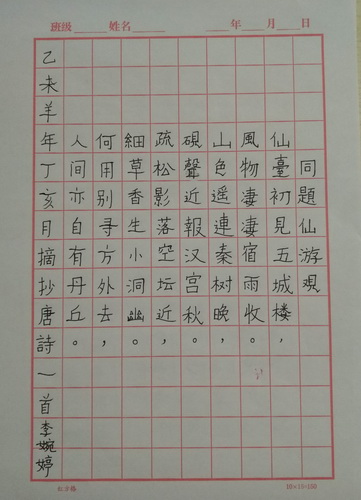 班级______姓名______ ____年____月____日
同題仙游觀
仙臺初見五城楼，
風物淒淒宿雨收。
山色遥連秦树晚，
硯聲近報汉宫秋。
疏松影落空坛近，
細草香生小洞幽。
何用别寻方外去，
人间亦自有丹丘。
乙未羊年丁亥月摘抄唐詩一首李婉婷
10×15=150